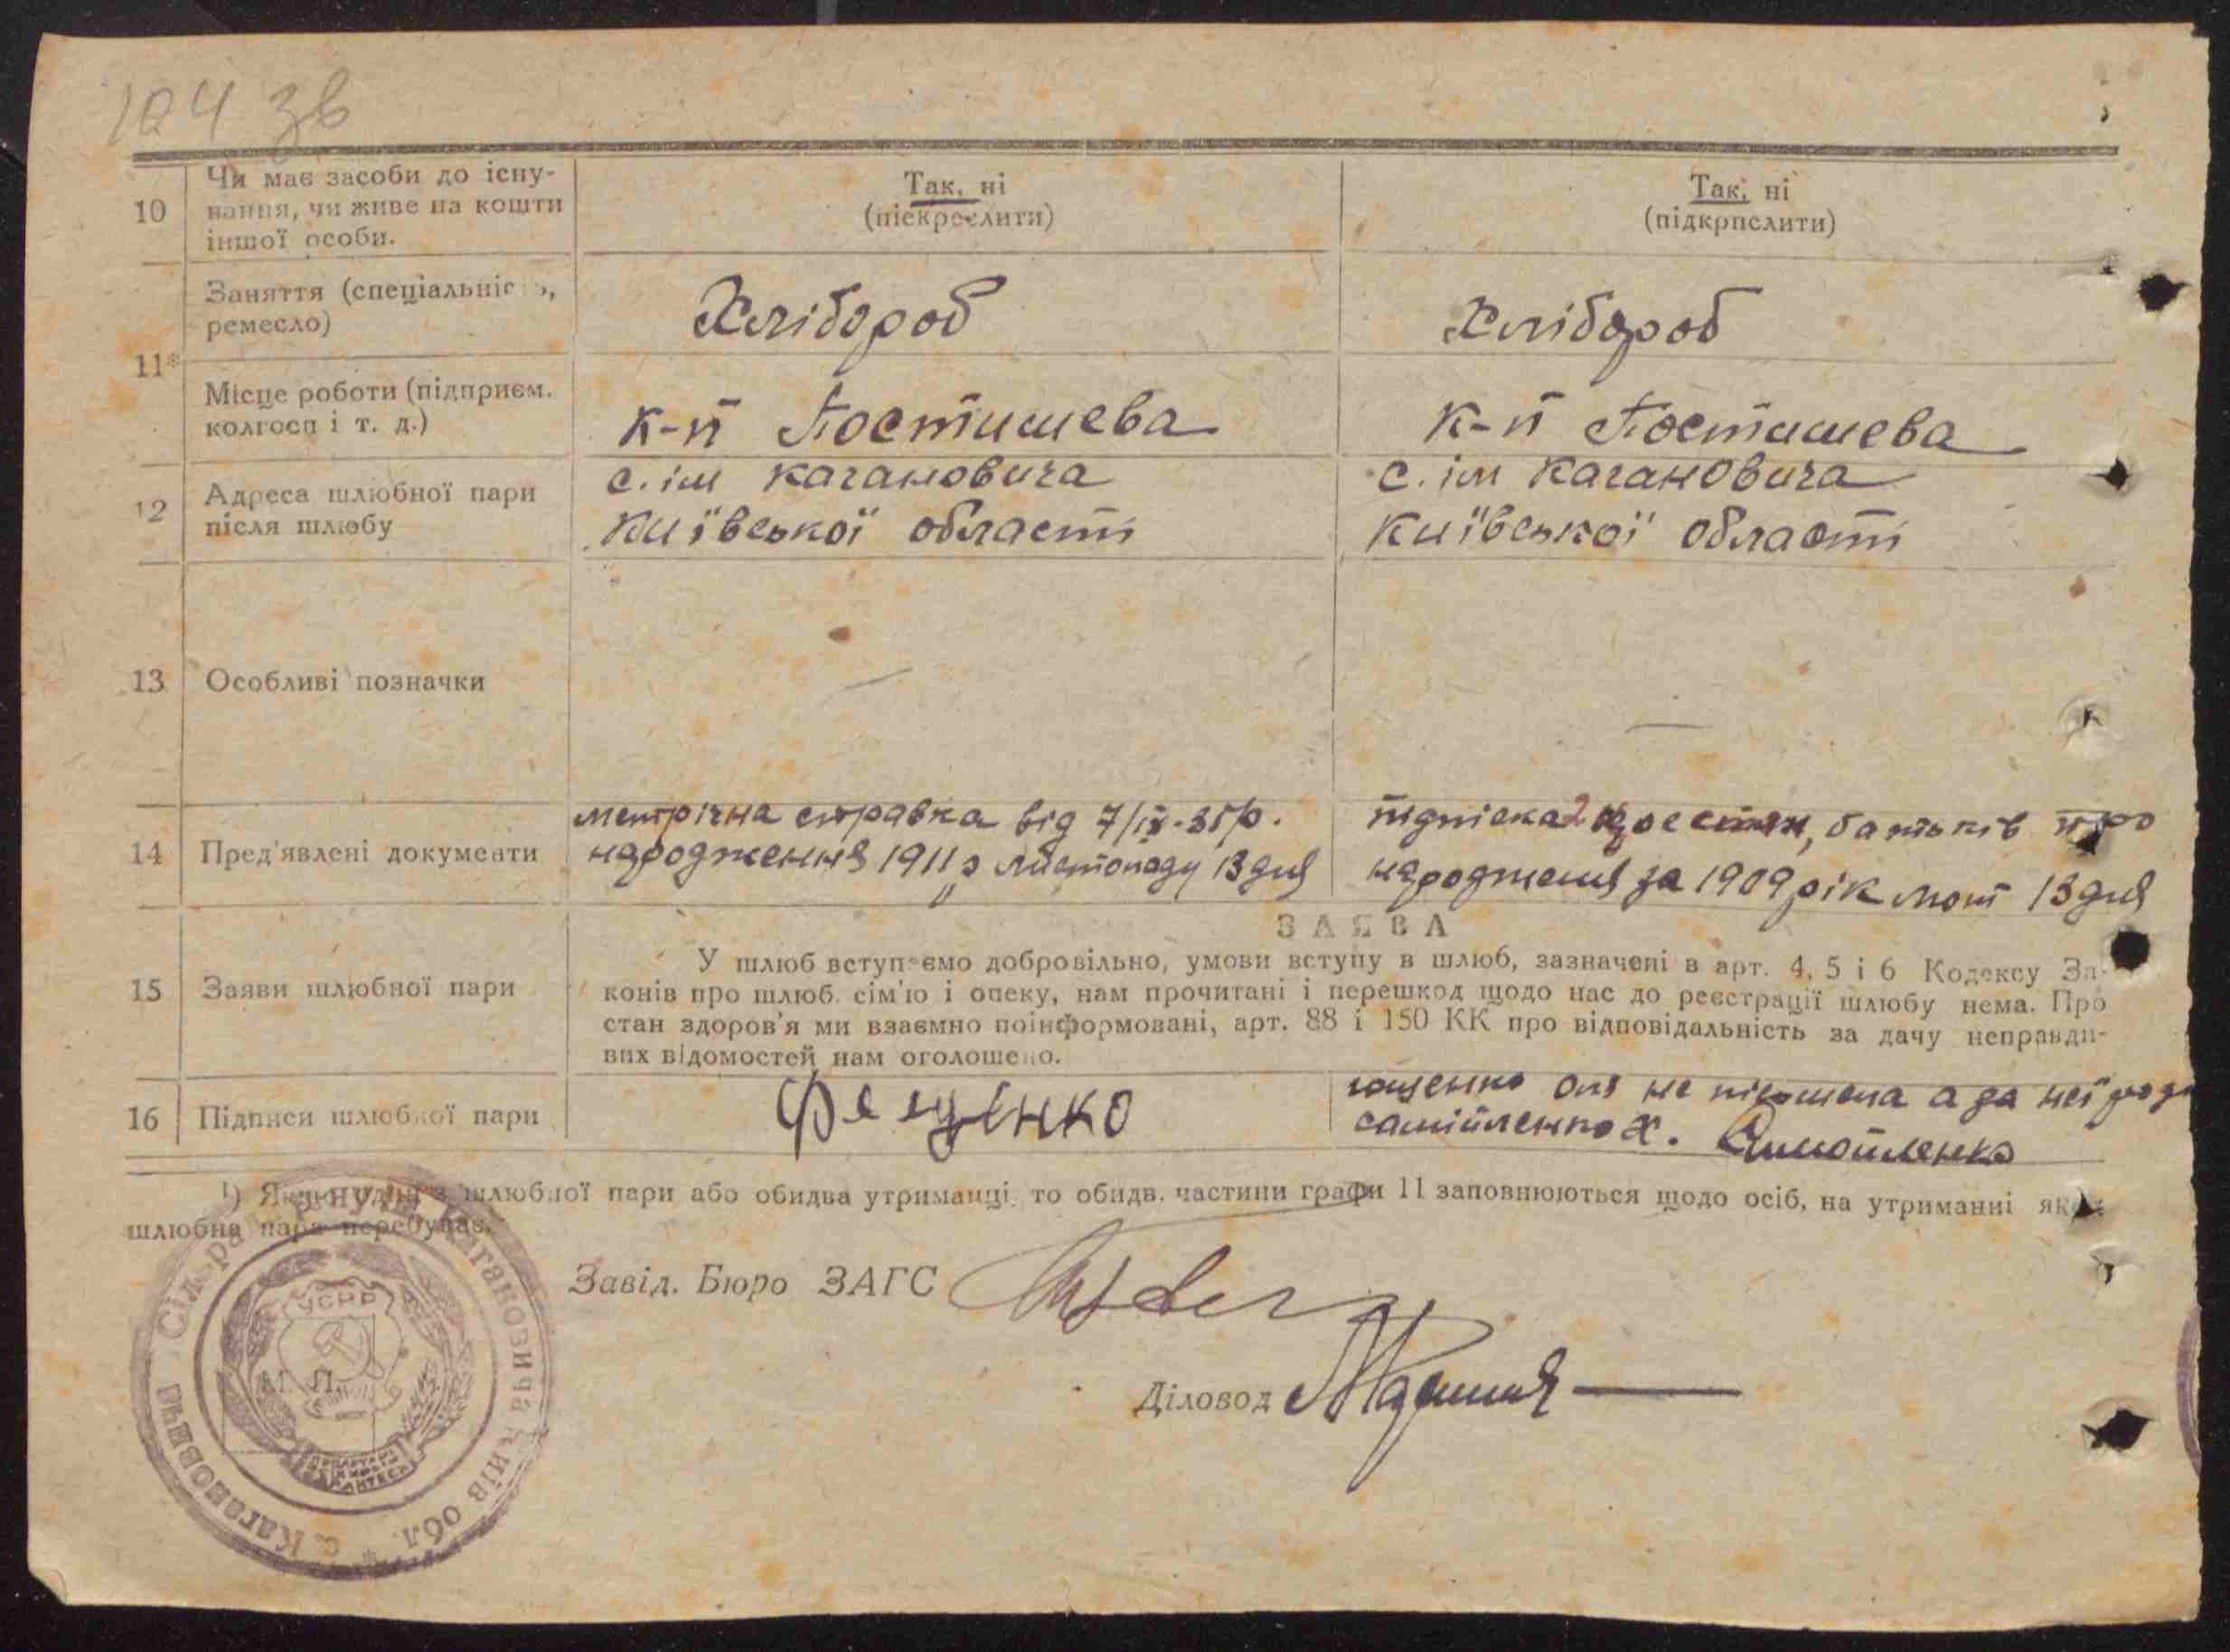 104 зв
10
Чи має засоби до існу-
вання, чи живе на кошти
іншої особи.
Так, ні
(піекреслити)
Так, ні
(підкрпслити)
11*
Заняття (спеціальніс ь,
ремесло)
Хлібороб
Хлібороб
Місце роботи (підприєм.
колгосп і т. д.)
к-п Постишева
к-п Постишева
12
Адреса шлюбної пари
після шлюбу
с. ім Кагановича
Київської області
с. ім Кагановича
Київської області
13
Особливі позначки
—
—
14
Пред'явлені документи
метрічна справка від 7/ІХ-35р.
народження 1911 р листопаду 13 дня
підпіска 2 батьків про
народженя за 1909 рік лют 13 дня
15
Заяви шлюбної пари
ЗАЯВА
У шлюб вступаємо добровільно, умови вступу в шлюб, зазначені в арт. 4, 5 і 6 Кодексу За-
конів про шлюб. сім'ю і опеку, нам прочитані і перешкод щодо нас до реєстрації шлюбу нема. Про
стан здоров'я ми взаємно поінформовані, арт. 88 і 150 КК про відповідальність за дачу неправди-
вих відомостей нам оголошено.
16
Підписи шлюбної пари
Фещенко
ющенко оля не пісьмена а за неї
самійленко х. Самойленко
¹) Якщо один з шлюбної пари або обидва утриманці то обидв. частини графи 11 заповнюються щодо осіб, на утриманні яких
шлюбна пара перебуває.
Завід. Бюро ЗАГС
Діловод
М. П.
УСРР
Кагановича Київ обл. * с. Кагановичі Сіль